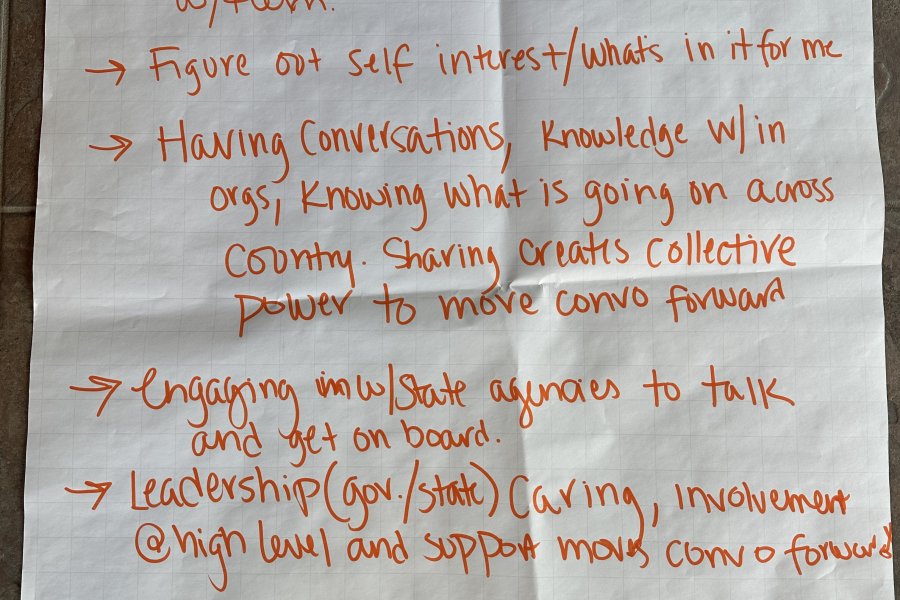 → Figure out self interest/whats in it for me
→ Having Conversations, Knowledge w/in
orgs, Knowing what is going on across
Country. Sharing creates collective
power to move convo forward
→ engaging w/State agencies to talk
and get on board.
→ Leadership (gov./state) Caring, involvement
@ high level and support moves convo forward